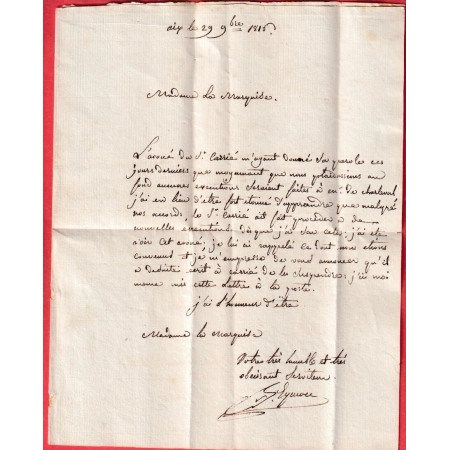 aix le 29 9bre 1816.
Madame La Marquise.
L'avoué du Sr. Carrié m'ayant donné sa parole ces
jours derniers que moyennant que nous plaidassions au
fond aucunes exécutions seraient faites à mr. de charleval
j'ai eu lieu d'être fort étonné d'apprendre que malgré
nos accords, le Sr. Carrié ait fait procéder à de
nouvelles exécutions dès que j'ai su cela; j'ai été
voir cet avoué; je lui ai rappelé ce dont nous étions
convenus et je m'empresse de vous annoncer qu'il
a de suite écrit à carrié de les suspendre; j'ai moi
meme mis cette lettre à la poste.
j'ai l'honneur d'être
Madame la marquise
Votre très humble et très
obeissant Serviteur